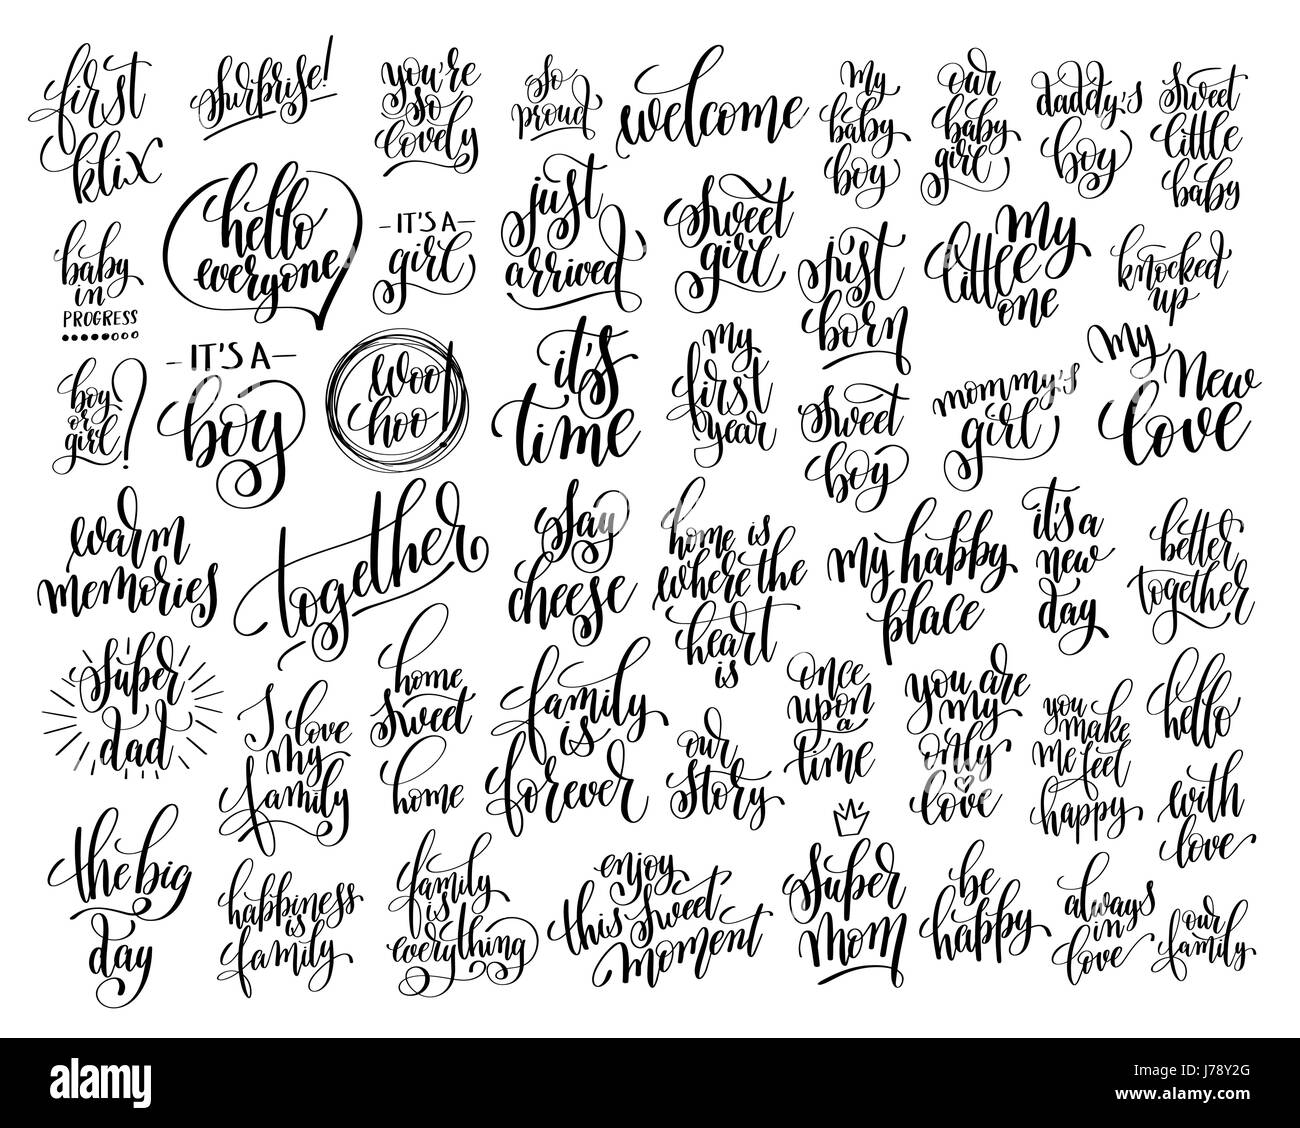 first
klix
surprise!
you're
so
lovely
so
proud
welcome
my
baby
boy
our
baby
girl
daddy's
boy
sweet
little
baby
hello
everyone
IT'S A
girl
just
arrived
sweet
girl
just
born
my
little
one
knocked
up
baby
in
PROGRESS
boy
or
girl?
IT'S A
boy
woo
hoo!
it's
time
my
first
year
sweet
boy
mommy's
girl
my
new
love
warm
memories
together
say
cheese
home is
where the
heart
is
my happy
place
it's a
new
day
better
together
super
dad
I love
my
family
home
sweet
home
family
is
forever
our
story
once
upon
a
time
you are
my
only
love
you
make
me feel
happy
hello
with
love
the big
day
happiness
is
family
family
is
everything
enjoy
this sweet
moment
super
mom
be
happy
always
in
love
our
family
alamy
Image ID: J78Y2G
www.alamy.com